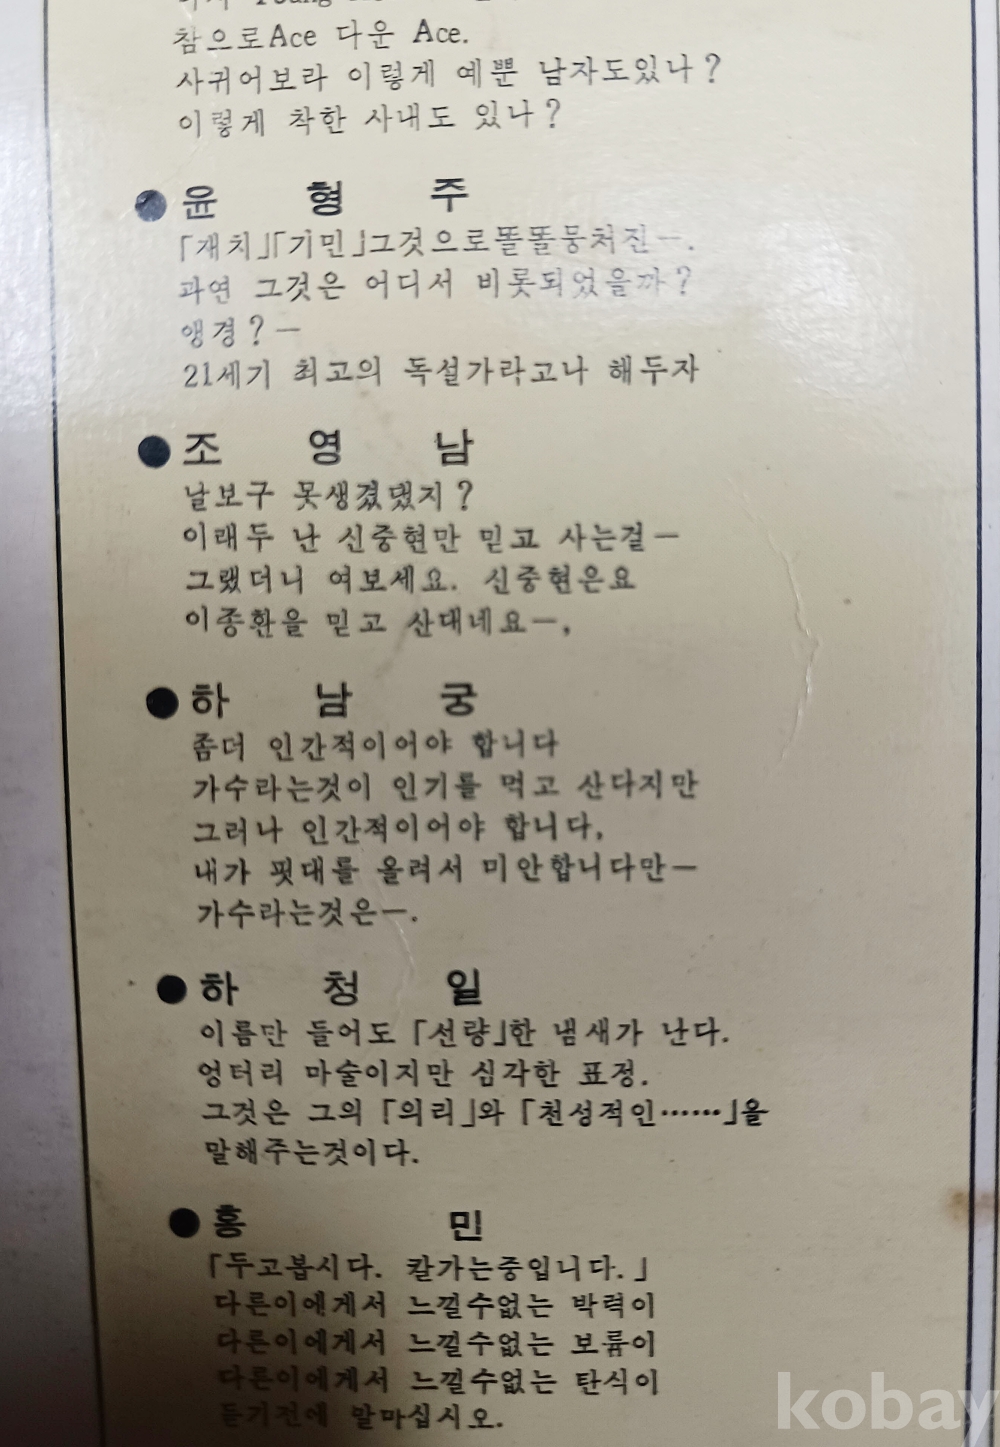 참으로Ace 다운 Ace.
사귀어보라 이렇게 예쁜 남자도있나?
이렇게 착한 사내도 있나?
●윤 형 주
「재치」「기민」그것으로똘똘뭉쳐진—.
과연 그것은 어디서 비롯되었을까?
앵경?—
21세기 최고의 독설가라고나 해두자
●조 영 남
날보구 못생겼댔지?
이래두 난 신중현만 믿고 사는걸—
그랬더니 여보세요. 신중현은요
이종환을 믿고 산대네요—,
●하 남 궁
좀더 인간적이어야 합니다
가수라는것이 인기를 먹고 산다지만
그러나 인간적이어야 합니다,
내가 핏대를 올려서 미안합니다만—
가수라는것은—.
●하 청 일
이름만 들어도 「선량」한 냄새가 난다.
엉터리 마술이지만 심각한 표정.
그것은 그의 「의리」와 「천성적인……」을
말해주는것이다.
●홍 민
「두고봅시다. 칼가는중입니다.」
다른이에게서 느낄수없는 박력이
다른이에게서 느낄수없는 보륨이
다른이에게서 느낄수없는 탄식이
듣기전에 말마십시오.
kobay